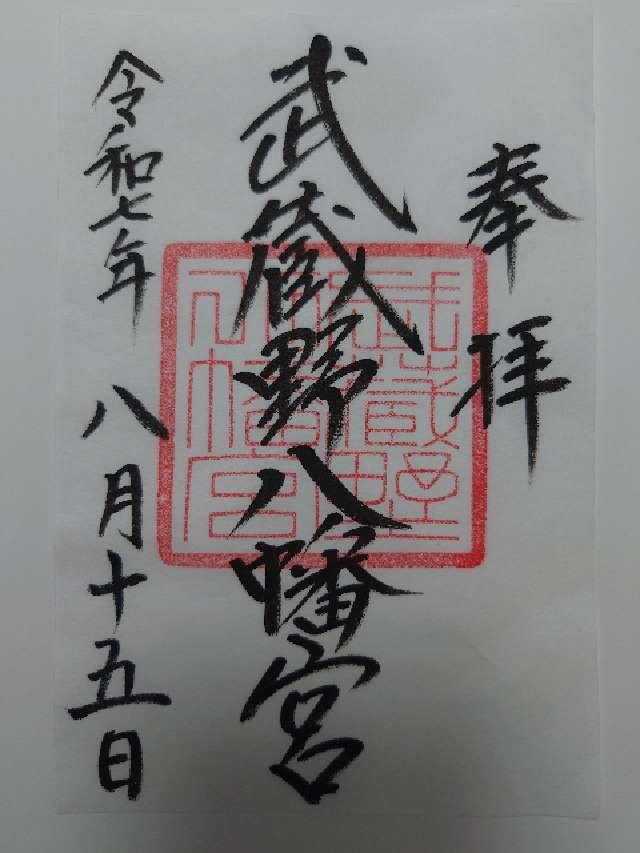 奉拝
武蔵野八幡宮
令和七年 八月十五日
武蔵野
八幡宮